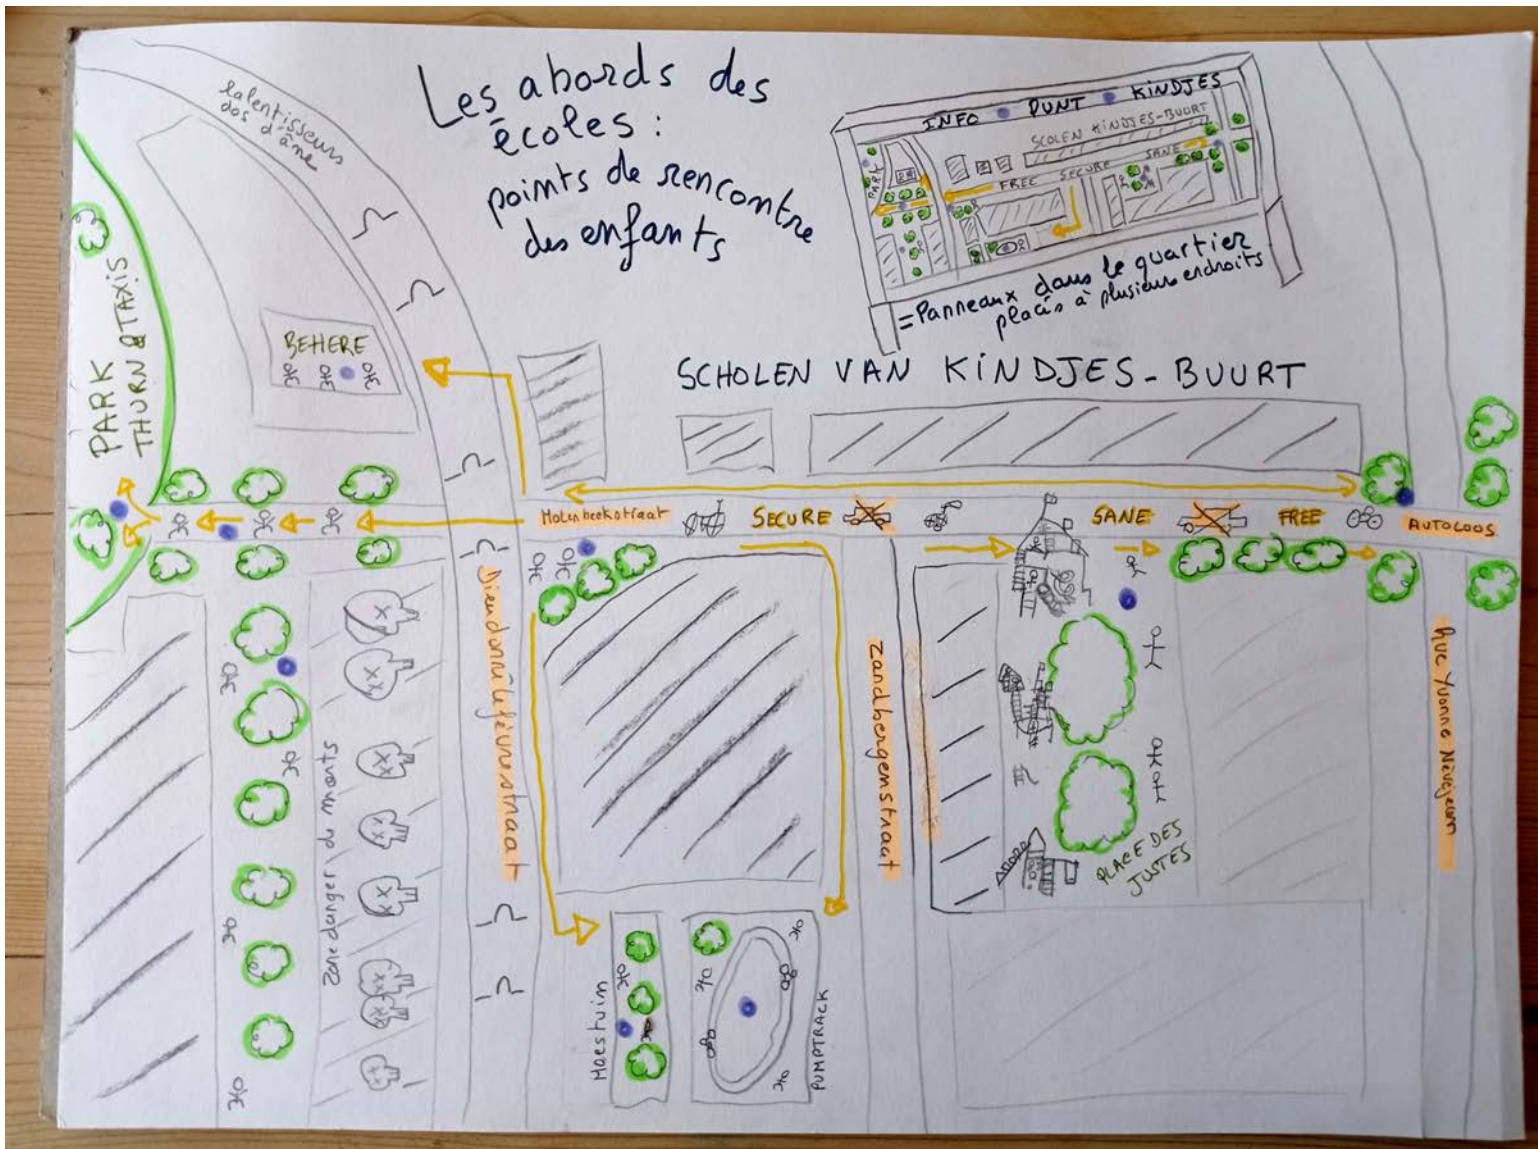 Les abords des
écoles :
points de rencontre
des enfants
ralentisseurs
dos d'âne
INFO PUNT KINDJES
SCOLEN KINDJES-BUURT
PARK
FREE SECURE SANE
= Panneaux dans le quartier
placés à plusieurs endroits
PARK
THURN & TAXIS
BEHERE
SCHOLEN VAN KINDJES-BUURT
Molenbeekstraat
SECURE
SANE
FREE
AUTOLOOS
Dieudonné Lefèvrestraat
Zandbergenstraat
Rue Yvonne Nèvejean
zone danger de morts
PLACE DES
JUSTES
Maestuin
PUMPTRACK